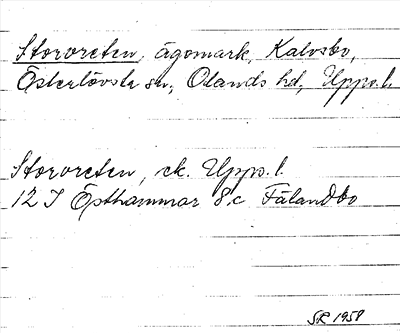 Stororeten, ägomark, Kalvsbo,
Österlövsta sn, Olands hd, Upps. l.
Stororeten, ek. Upps. l.
12 I Östhammar 8 c Fälandbo
SR 1958